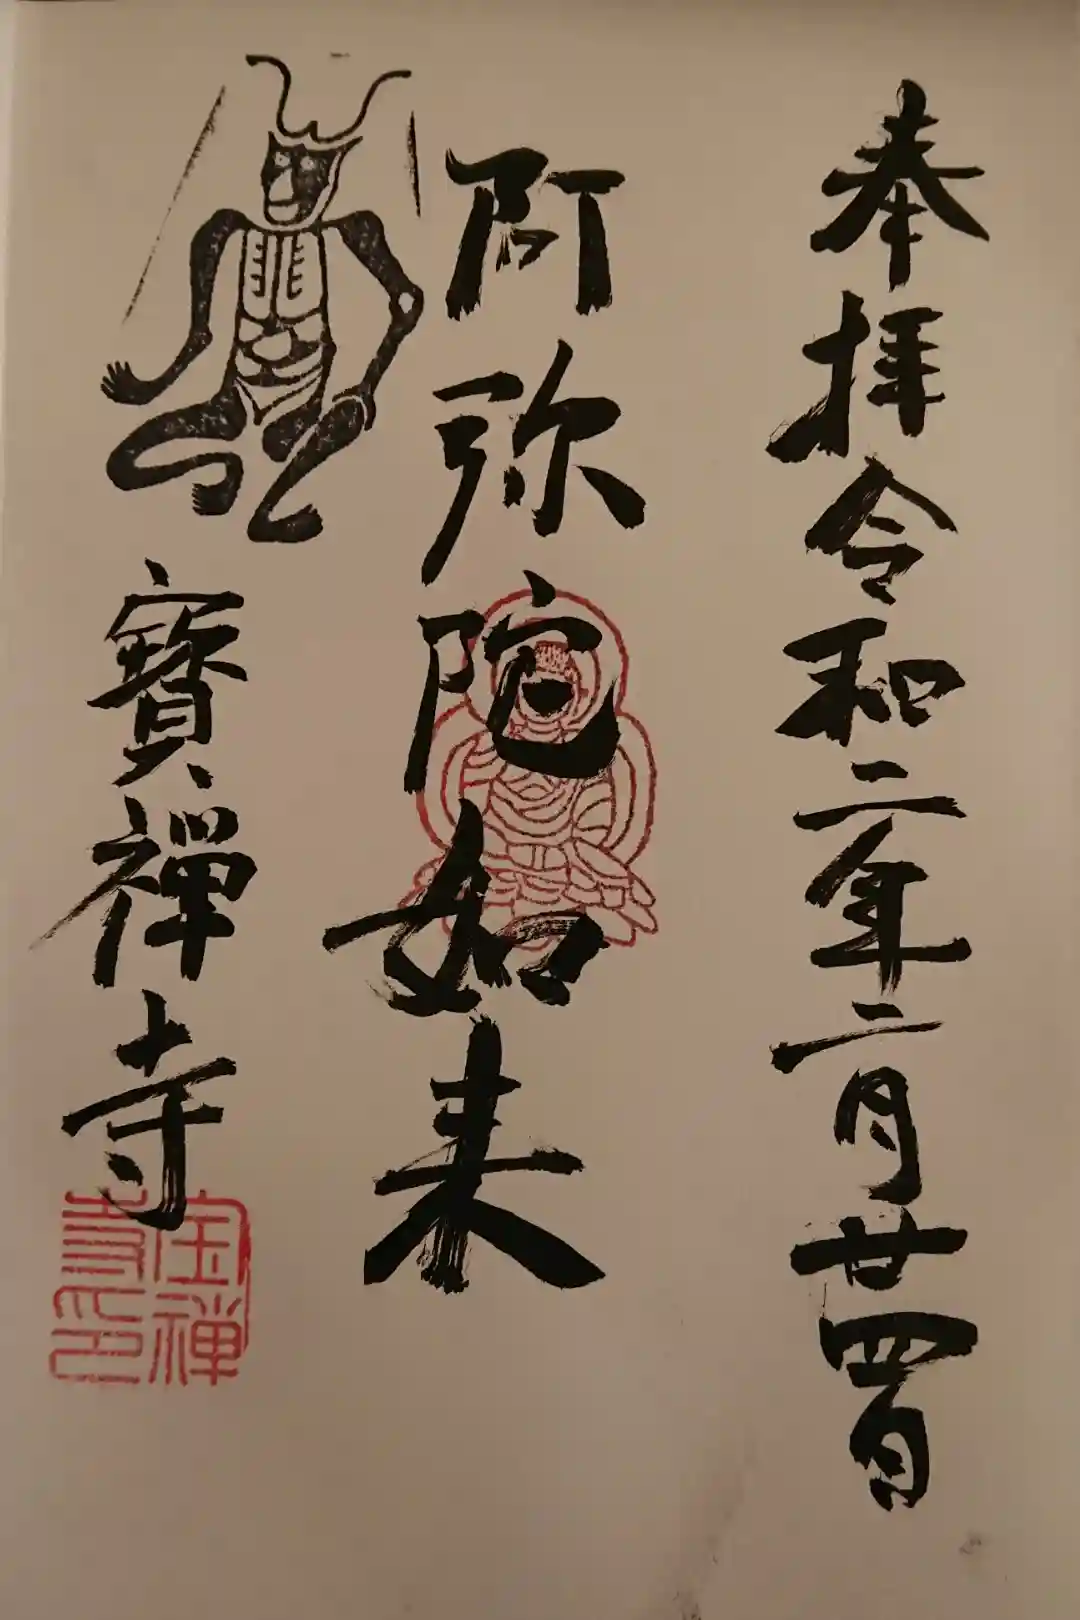 奉拝令和二年二月廿四日
阿弥陀如来
寳禅寺
宝禅寺印